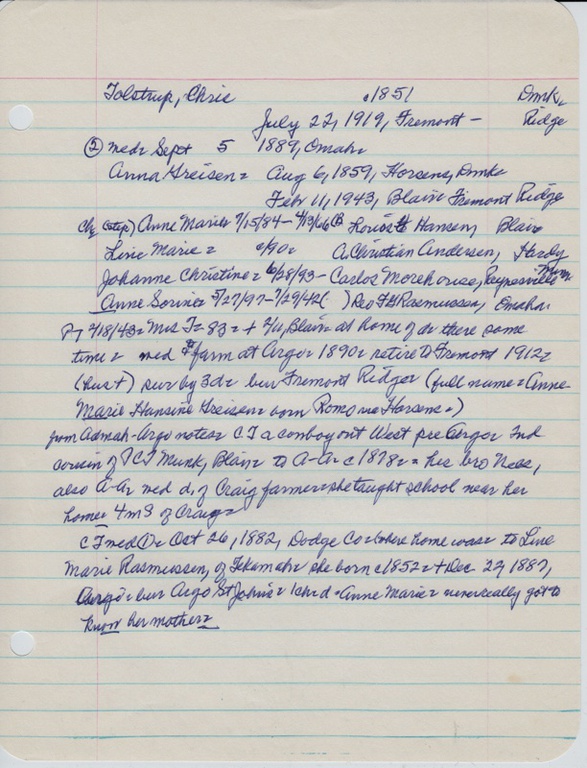 Tolstrup, Chris c1851 Dmk,
July 22, 1919, Fremont - Ridge
② med = Sept 5 1889, Omaha
Anna Greisen = Aug 6, 1859, Horsens, Dmk =
Feb 11, 1943, Blair = Fremont Ridge
Ch (step) Anne Marie = 7/15/84 - Louis H Hansen, Blair
Line Marie = c/90 = A. Christian Andersen, Hardy
Johanne Christine = 6/28/93 - Carlos Morehouse,
Anne Sorine = 5/27/97 - 7/29/42 ( ) Rasmussen, Omaha
2/18/43 = Mrs T = 83 = + 2/11, Blair at home of da there some
time = med farm at Argo = 1890 = retire to Fremont 1912 =
(hus +) sur by 3 d = bur Fremont Ridge = (full name = Anne
Marie Hansine Greisen = born Romo via Horsens = )
from Admah-Argo notes = C T a cowboy out West pre Argo = 2nd
cousin of PCJ Munk, Blair = to A-A = c 1878 = = his bro Nels,
also A-A = med d. of Craig farmer = she taught school near her
home = 4m S of Craig =
C T med ① = Oct 26, 1882, Dodge Co = where home was = to Line
Marie Rasmussen, of Tekamah = she born c1852 = + Dec 27, 1887,
Argo = bur Argo St Johns = 1 chd = Anne Marie = never really got to
know her mother =